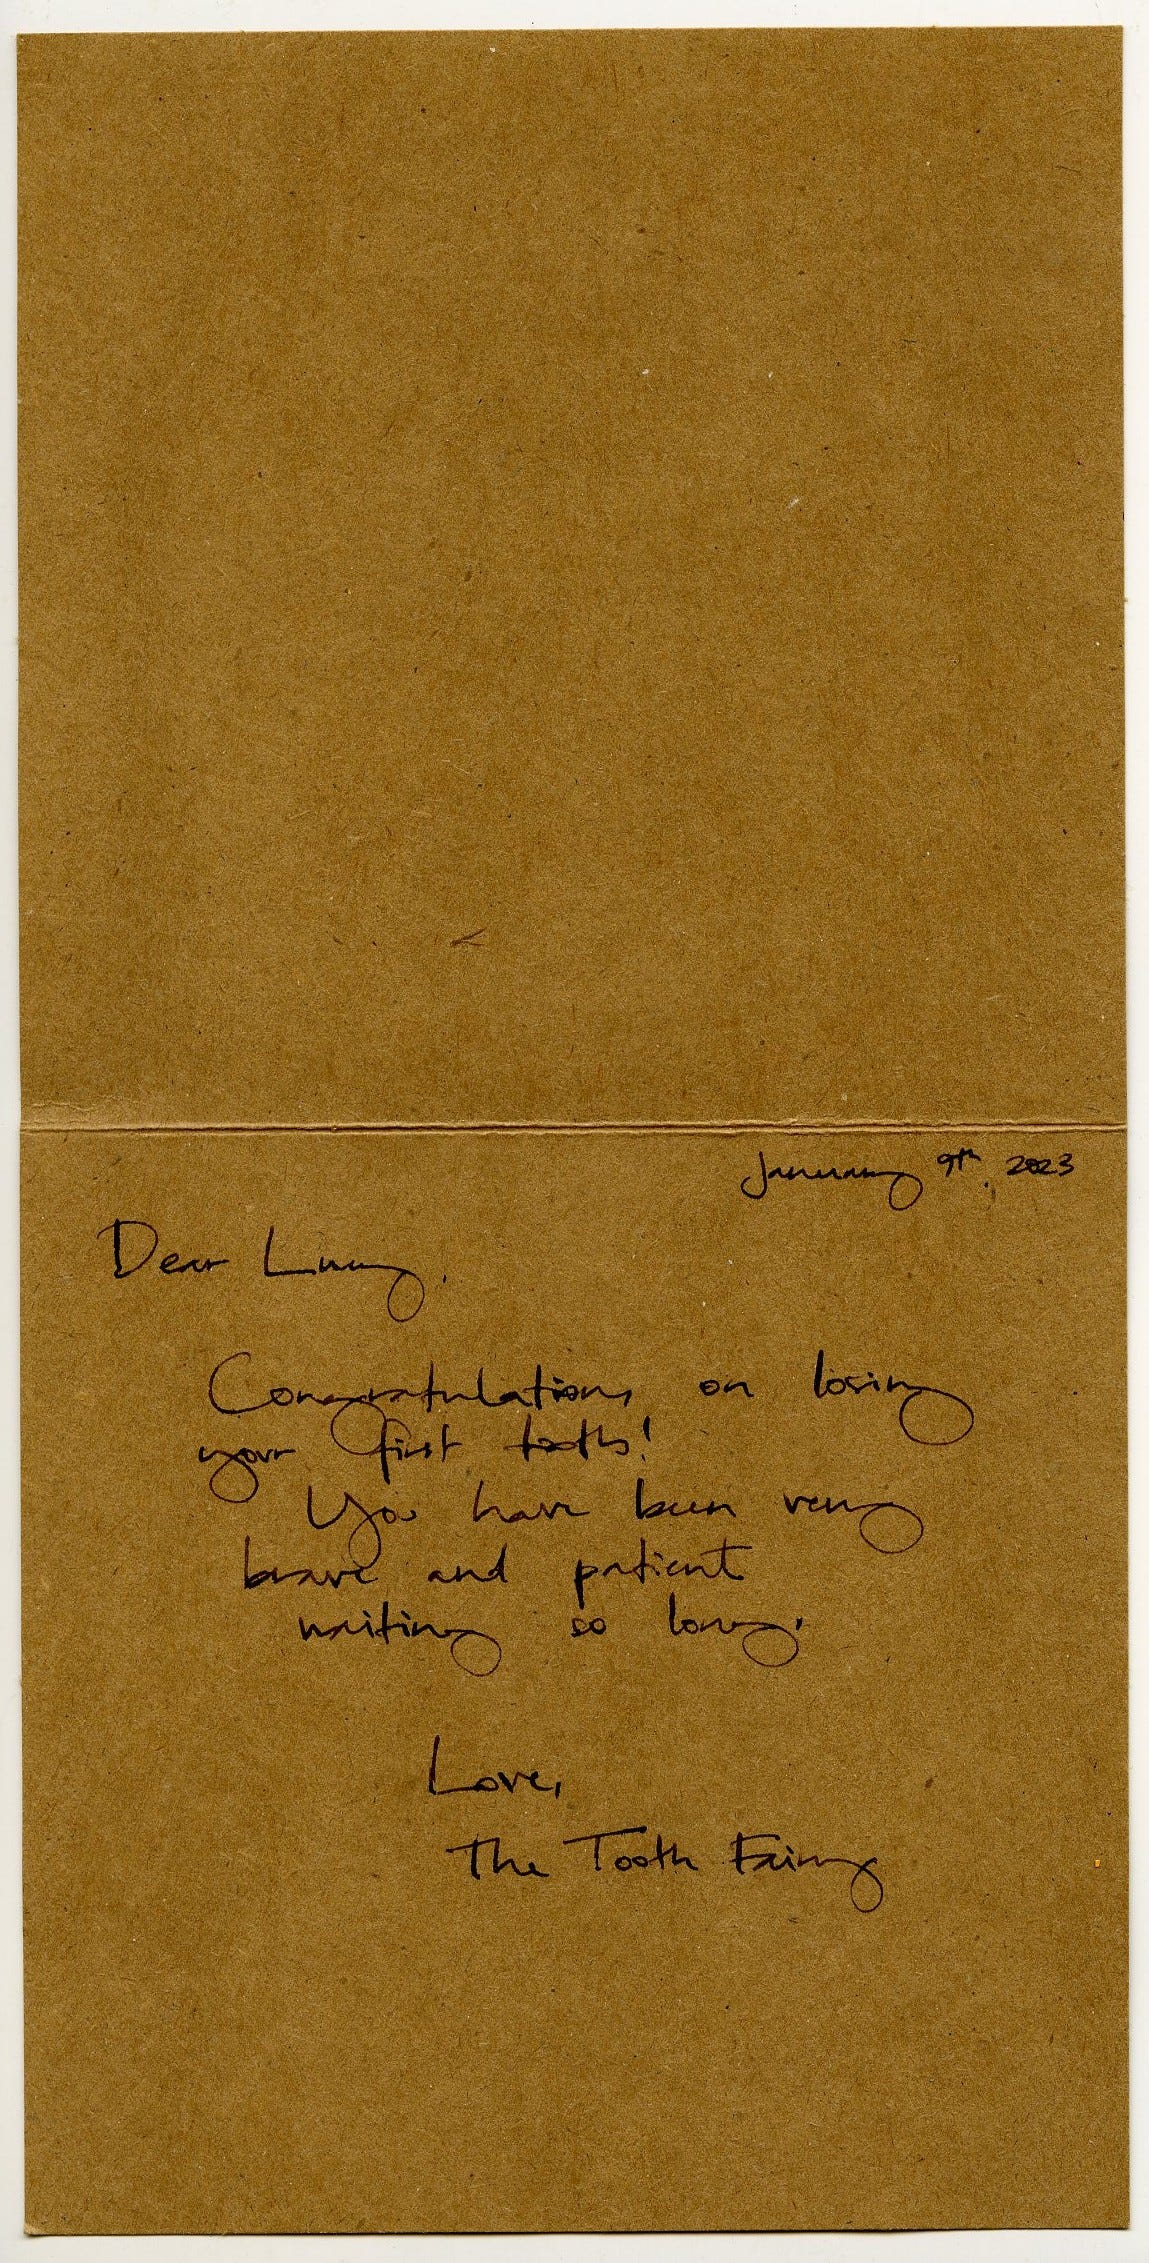 January 9th, 2023
Dear
Congratulations on losing
your first tooth!
You have been very
brave and patient
waiting so long.
Love,
The Tooth Fairy